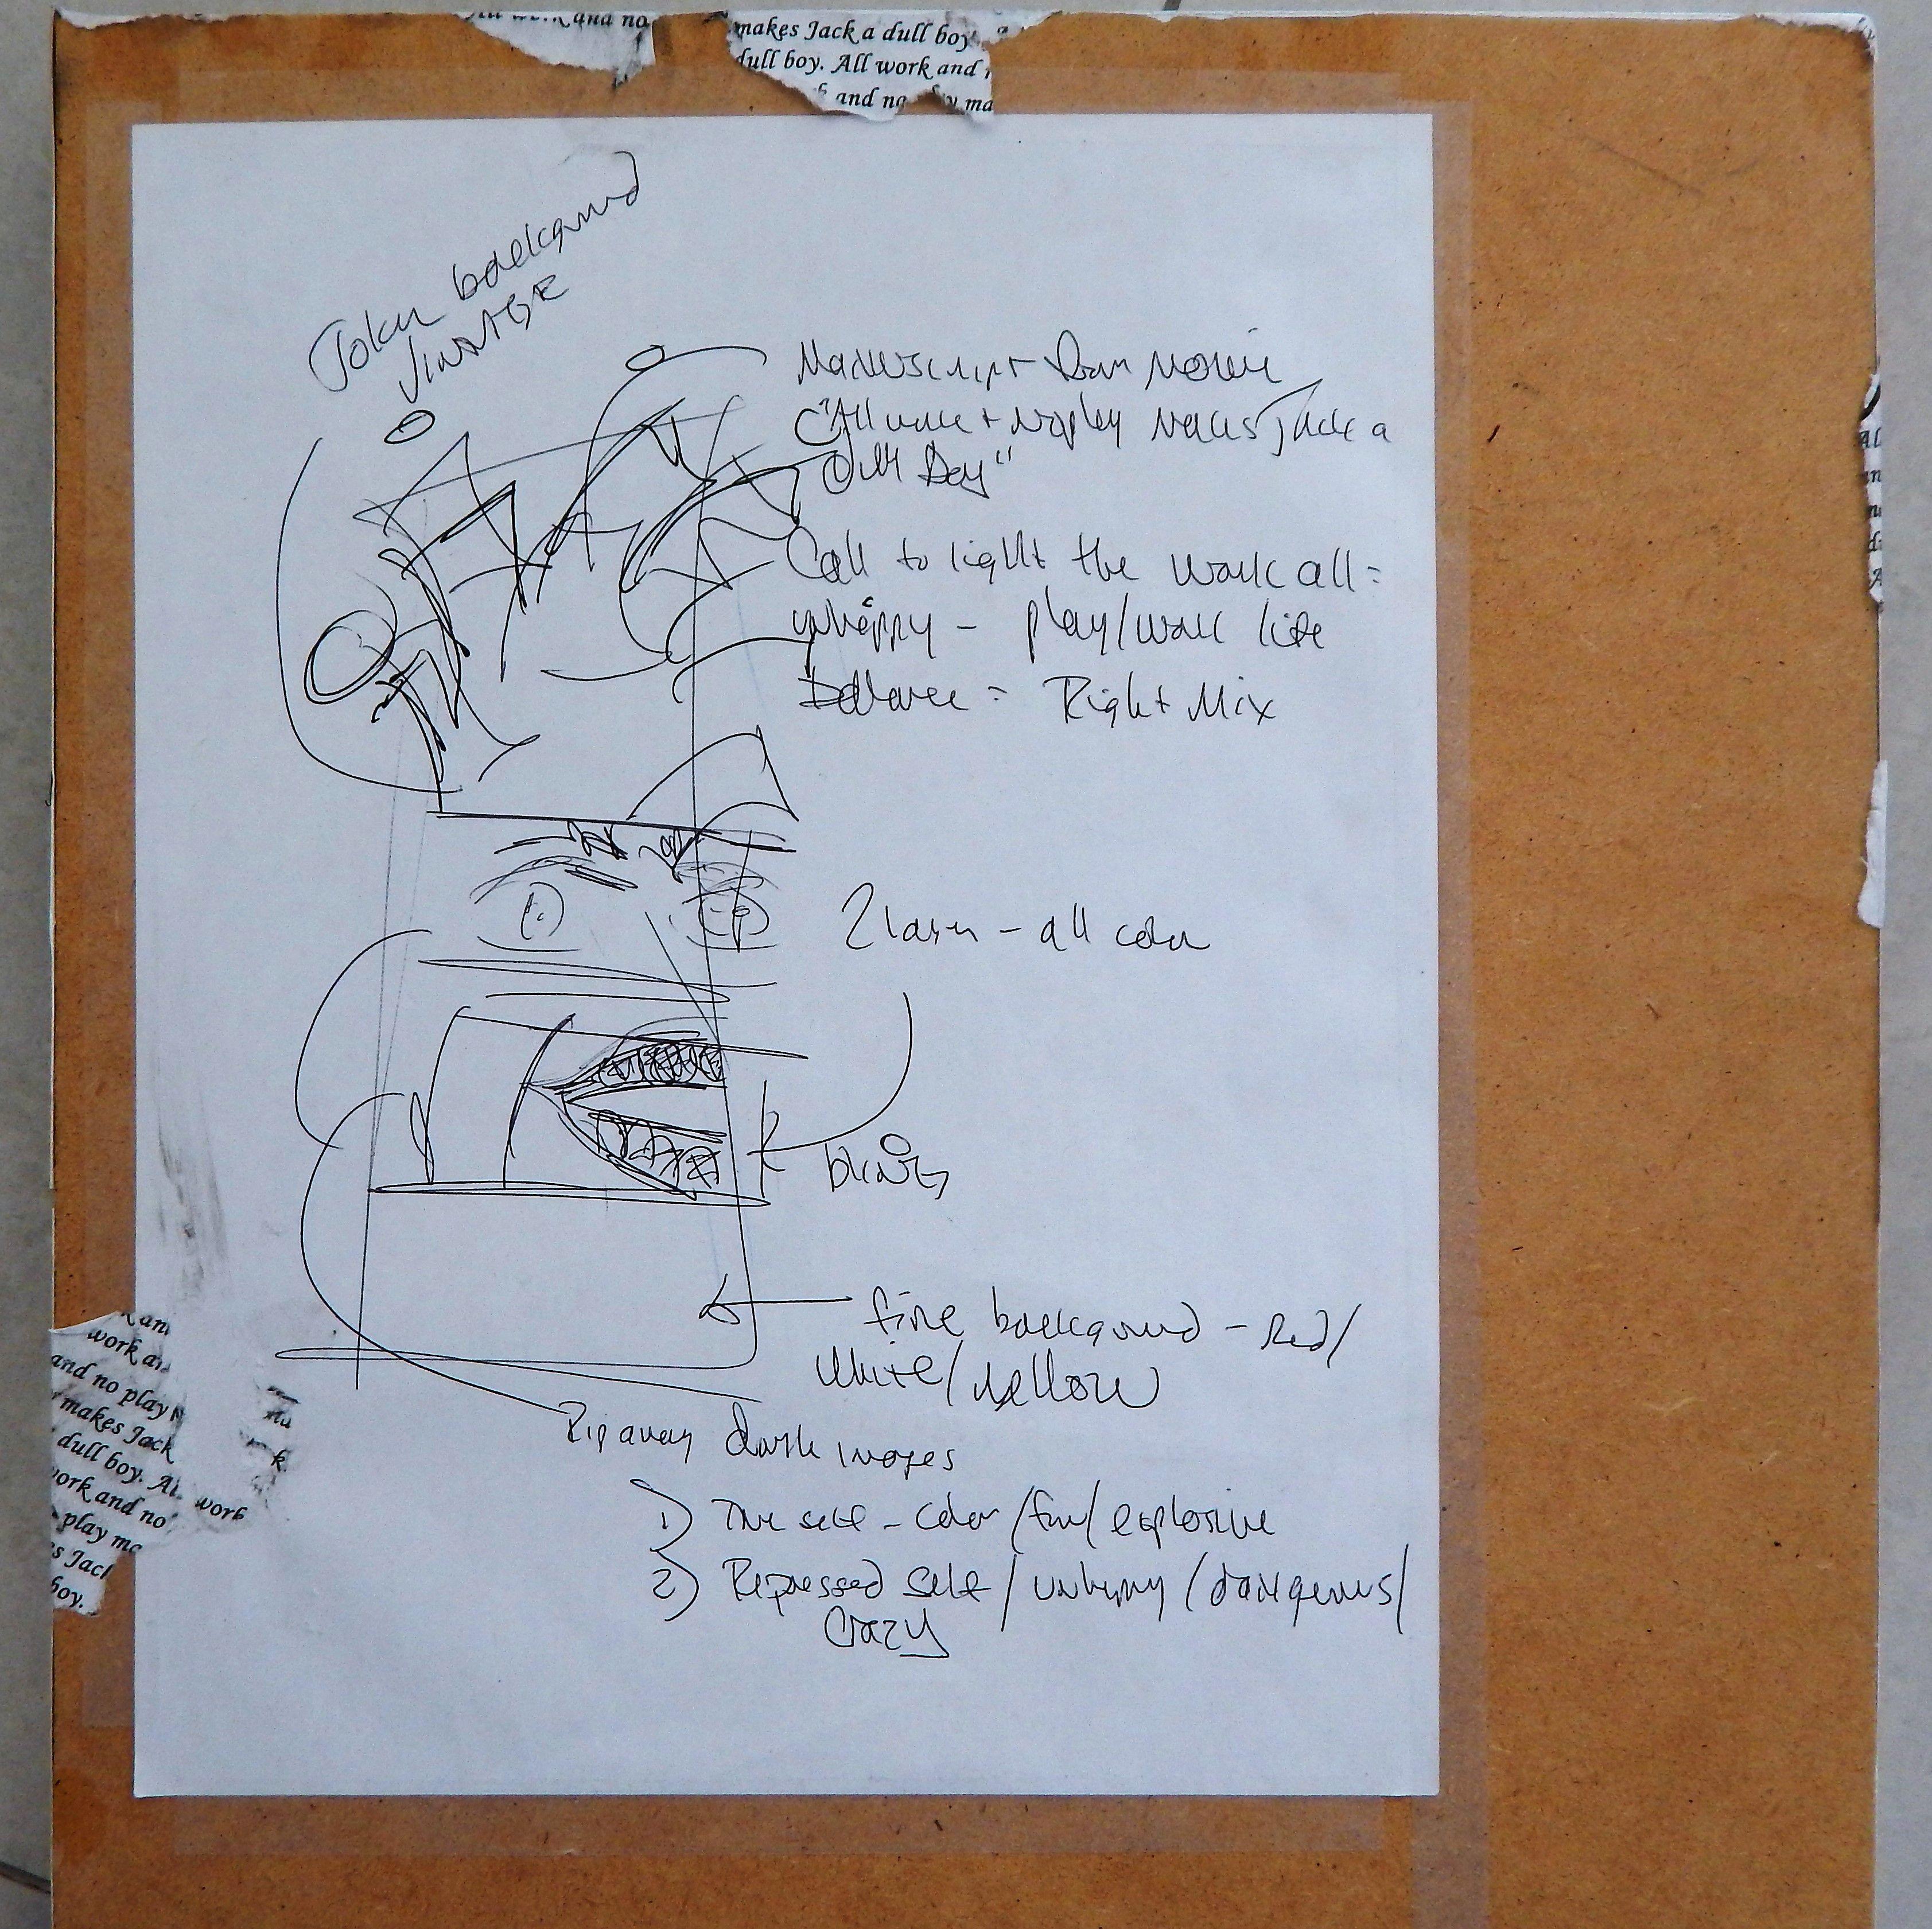 and no
makes Jack a dull boy
dull boy. All work and
and no
Joker background
VINTAGE
Manuscript from Movie
"All work + no play makes Jack a
Dull Boy"
Call to light the work all =
unhappy - play/work life
Balance = Right Mix
2 layer - all color
fire background - Red/
White/yellow
Rip away dark images
1) True self - color/fun/explosive
2) Repressed self/unhappy/dangerous/
Crazy
work
and no play
makes Jack
dull boy.
work
work and no
play
boy.